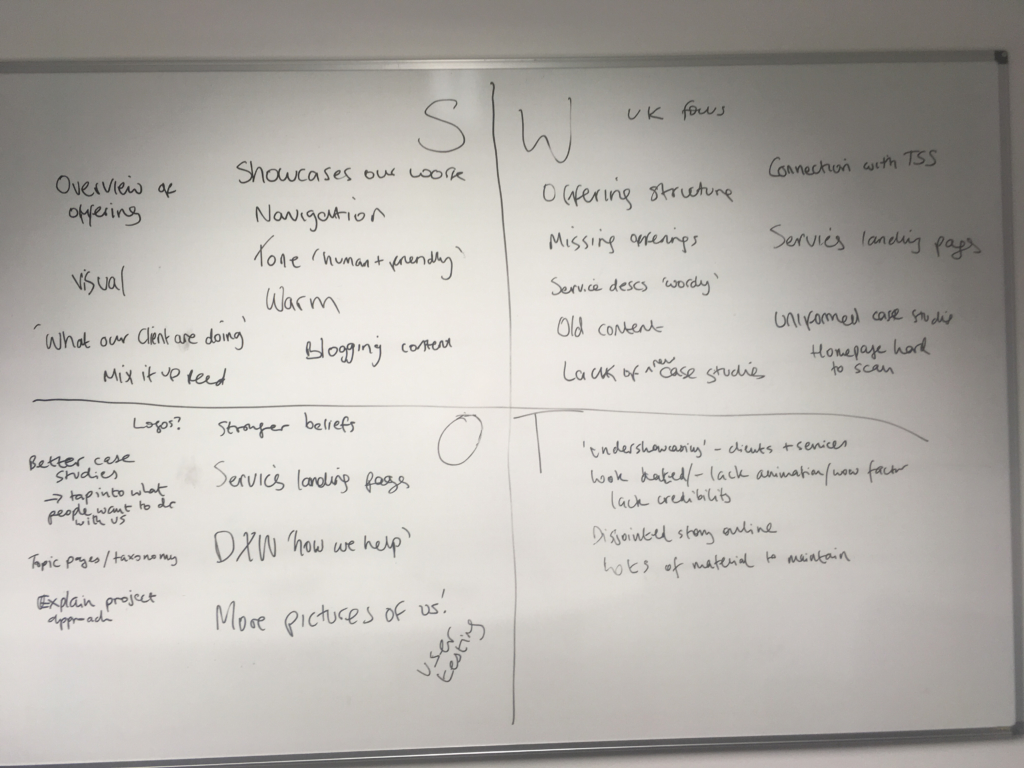 S
Overview of
offering
Showcases our work
Navigation
Tone 'human + friendly'
Visual
Warm
'What our Client are doing'
Blogging content
Mix it up feed
W
UK focus
Connection with TSS
Offering structure
Missing offerings
Services landing pages
Service descs 'wordy'
Old content
Uniformed case studies
Lack of new case studies
Homepage hard
to scan
O
Logos?
Stronger beliefs
Better case
studies
→ tap into what
people want to do
with us
Services landing pages
Topic pages/taxonomy
DXW 'how we help'
Explain project
approach
More pictures of us!
user
testing
T
'undershowcasing' - clients + services
Look dated/- lack animation/wow factor
lack credibility
Disjointed story online
Lots of material to maintain